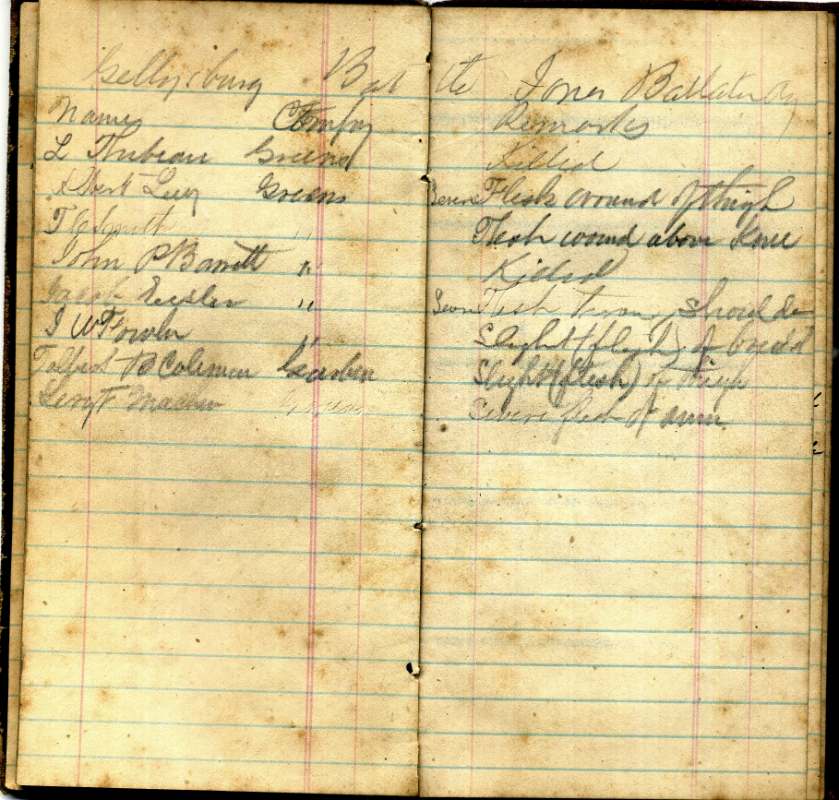 Gettysburg Battle Jones Ballaton
Names Company Remarks
L Thibeau Greens Killed
Albert Levy Greens Severe Flesh wound of thigh
T C Smith " Flesh wound above Knee
John P Barrett " Killed
Jacob " Severe Flesh Shoulder
J W Fowler " Slight (flesh) of
B Coleman Garden Slight (flesh) of thigh
Sergt Severe flesh of arm